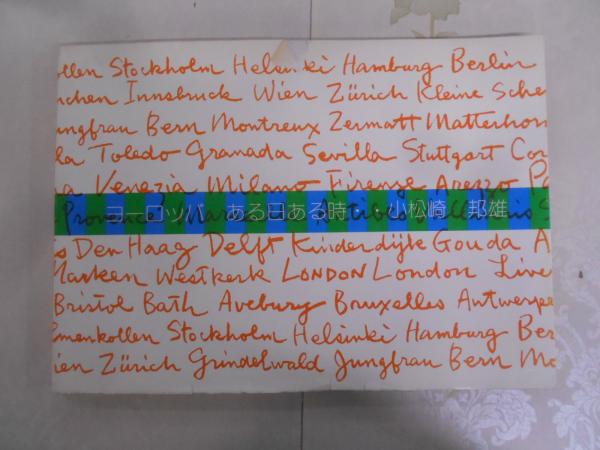 ollen Stockholm Helsinki Hamburg Berlin
nchen Innsbruck Wien Zürich Kleine Sche
ungfrau Bern Montreux Zermatt Matterhor
la Toledo Granada Sevilla Stuttgart Cor
a Venezia Milano Firenze Arezzo Pa
Provence
ヨーロッパ ある日ある時 小松崎 邦雄
s Den Haag Delft Kinderdijk Gouda A
Marken Westkerk LONDON London Live
Bristol Bath Avebury Bruxelles Antwerpe
lmenkollen Stockholm Helsinki Hamburg Ber
ien Zürich Grindelwald Jungfrau Bern Mo